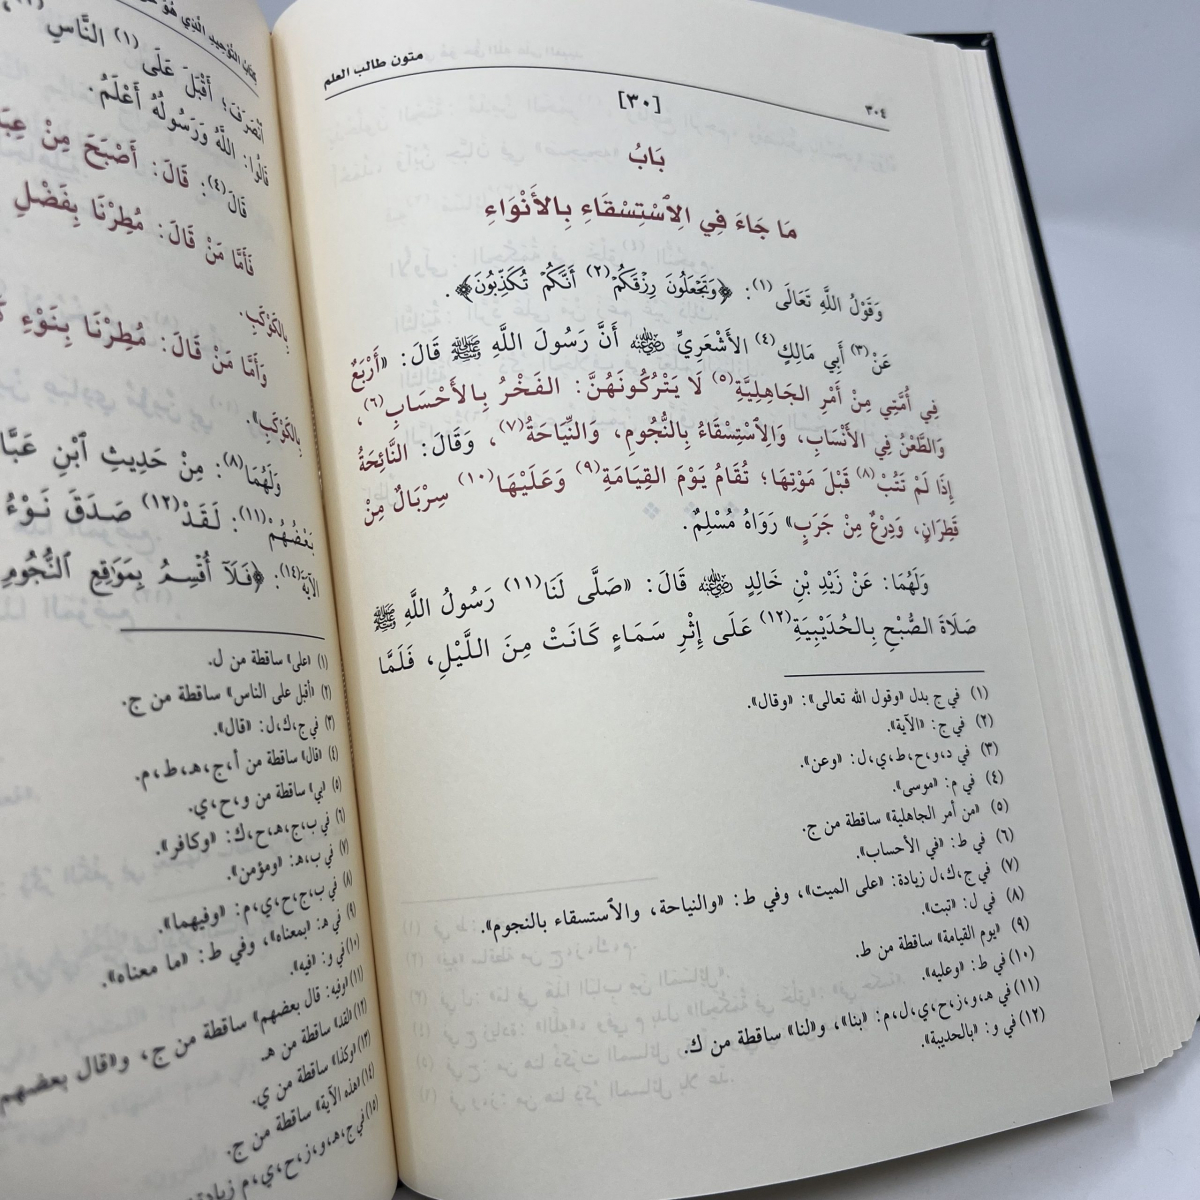 ٣٠٤
متون طالب العلم
[٣٠]
بَابُ
مَا جَاءَ فِي الِٱسْتِسْقَاءِ بِالأَنْوَاءِ
وَقَوْلُ اللَّهِ تَعَالَى(١): ﴿وَتَجْعَلُونَ رِزْقَكُمْ(٢) أَنَّكُمْ تُكَذِّبُونَ﴾.
عَنْ(٣) أَبِي مَالِكٍ(٤) الأَشْعَرِيِّ رضي الله عنه أَنَّ رَسُولَ اللَّهِ ﷺ قَالَ: «أَرْبَعٌ
فِي أُمَّتِي مِنْ أَمْرِ الجَاهِلِيَّةِ(٥) لَا يَتْرُكُونَهُنَّ: الفَخْرُ بِالأَحْسَابِ(٦)،
وَالطَّعْنُ فِي الأَنْسَابِ، وَالِٱسْتِسْقَاءُ بِالنُّجُومِ، وَالنِّيَاحَةُ(٧)، وَقَالَ: النَّائِحَةُ
إِذَا لَمْ تَتُبْ(٨) قَبْلَ مَوْتِهَا؛ تُقَامُ يَوْمَ القِيَامَةِ(٩) وَعَلَيْهَا(١٠) سِرْبَالٌ مِنْ
قَطِرَانٍ، وَدِرْعٌ مِنْ جَرَبٍ» رَوَاهُ مُسْلِمٌ.
وَلَهُمَا: عَنْ زَيْدِ بْنِ خَالِدٍ رضي الله عنه قَالَ: «صَلَّى لَنَا(١١) رَسُولُ اللَّهِ ﷺ
صَلَاةَ الصُّبْحِ بِالحُدَيْبِيَةِ(١٢) عَلَى إِثْرِ سَمَاءٍ كَانَتْ مِنَ اللَّيْلِ، فَلَمَّا
(١) في ج بدل «وقول الله تعالى»: «وقال».
(٢) في ج: «الآية».
(٣) في د،و،ح،ط،ي،ل: «وعن».
(٤) في م: «موسى».
(٥) «من أمر الجاهلية» ساقطة من ج.
(٦) في ط: «في الأحساب».
(٧) في ج،ك،ل زيادة: «على الميت»، وفي ط: «والنياحة، والٱستسقاء بالنجوم».
(٨) في ل: «تبت».
(٩) «يوم القيامة» ساقطة من ط.
(١٠) في ط: «وعليه».
(١١) في هـ،و،ز،ح،ي،ل،م: «بنا»، و«لنا» ساقطة من ك.
(١٢) في و: «بالحديبة».
كتاب التوحيد الذي هو
ٱنْصَرَفَ؛ أَقْبَلَ عَلَى(١) النَّاسِ
قَالُوا: اللَّهُ وَرَسُولُهُ أَعْلَمُ.
قَالَ(٤): قَالَ: أَصْبَحَ مِنْ
فَأَمَّا مَنْ قَالَ: مُطِرْنَا بِفَضْلِ
بِالكَوْكَبِ.
وَأَمَّا مَنْ قَالَ: مُطِرْنَا بِنَوْءِ
بِالكَوْكَبِ».
وَلَهُمَا(٨): مِنْ حَدِيثِ ٱبْنِ
بَعْضُهُمْ(١١): لَقَدْ(١٢) صَدَقَ نَوْءُ
الآيَةَ(١٤): ﴿فَلَآ أُقْسِمُ بِمَوَاقِعِ ٱلنُّجُومِ
(١) «على» ساقطة من ل.
(٢) «أقبل على الناس» ساقطة من ج.
(٣) في ج،ك،ل: «قال».
(٤) «قال» ساقطة من أ،ج،هـ،ط،م.
(٥) «بي» ساقطة من و،ح،ي.
(٦) في ب،ج،هـ،ح،ك: «وكافر».
(٧) في ب،هـ: «ومؤمن».
(٨) في ب،ج،ح،ي،م: «وفيهما».
(٩) في هـ: «بمعناه»، وفي ط: «ما معناه».
(١٠) في و: «فيه».
(١١) «وفيه: قال بعضهم» ساقطة من ج، و«قال بعضهم
(١٢) «لقد» ساقطة من هـ.
(١٣) «وكذا» ساقطة من ي.
(١٤) «هذه الآية» ساقطة من ج.
(١٥) في ج،هـ،و،ز،ح،ي،م